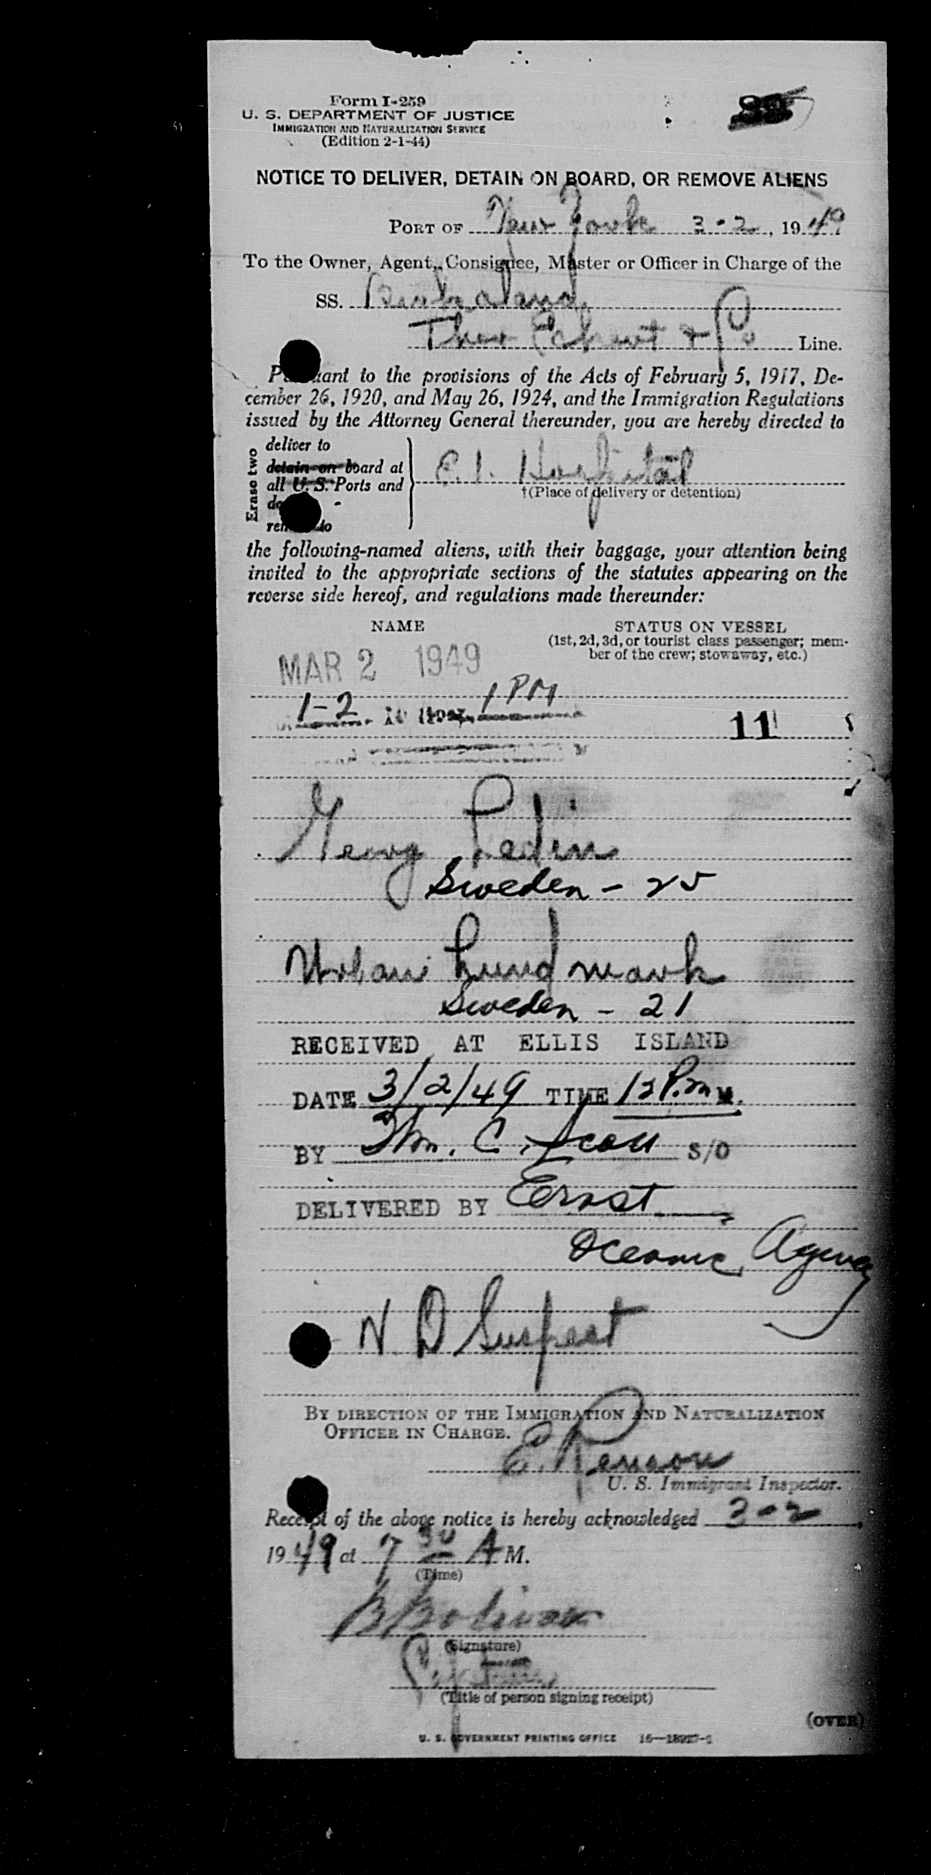 Form I-259
U. S. DEPARTMENT OF JUSTICE
IMMIGRATION AND NATURALIZATION SERVICE
(Edition 2-1-44)
NOTICE TO DELIVER, DETAIN ON BOARD, OR REMOVE ALIENS
PORT OF New York 3-2, 1949
To the Owner, Agent, Consignee, Master or Officer in Charge of the
SS.
& Co Line.
Pursuant to the provisions of the Acts of February 5, 1917, De-
cember 26, 1920, and May 26, 1924, and the Immigration Regulations
issued by the Attorney General thereunder, you are hereby directed to
Erase two
deliver to
detain on board at
all U. S. Ports and
remove to
E. I. Hospital
†(Place of delivery or detention)
the following-named aliens, with their baggage, your attention being
invited to the appropriate sections of the statutes appearing on the
reverse side hereof, and regulations made thereunder:
NAME STATUS ON VESSEL
(1st, 2d, 3d, or tourist class passenger; mem-
ber of the crew; stowaway, etc.)
MAR 2 1949
1-2 1 PM
11
Georg Ledin
Sweden - 25
Urban Lundmark
Sweden - 21
RECEIVED AT ELLIS ISLAND
DATE 3/2/49 TIME 12 P.m M.
BY Wm. C. Scott S/O
DELIVERED BY Ernst
Oceanic Agency
V. D Suspect
BY DIRECTION OF THE IMMIGRATION AND NATURALIZATION
OFFICER IN CHARGE.
E.
U. S. Immigrant Inspector.
Receipt of the above notice is hereby acknowledged 3-2
1949 at 7 30 A M.
(Time)
(Signature)
Captain
(Title of person signing receipt)
(OVER)
U. S. GOVERNMENT PRINTING OFFICE